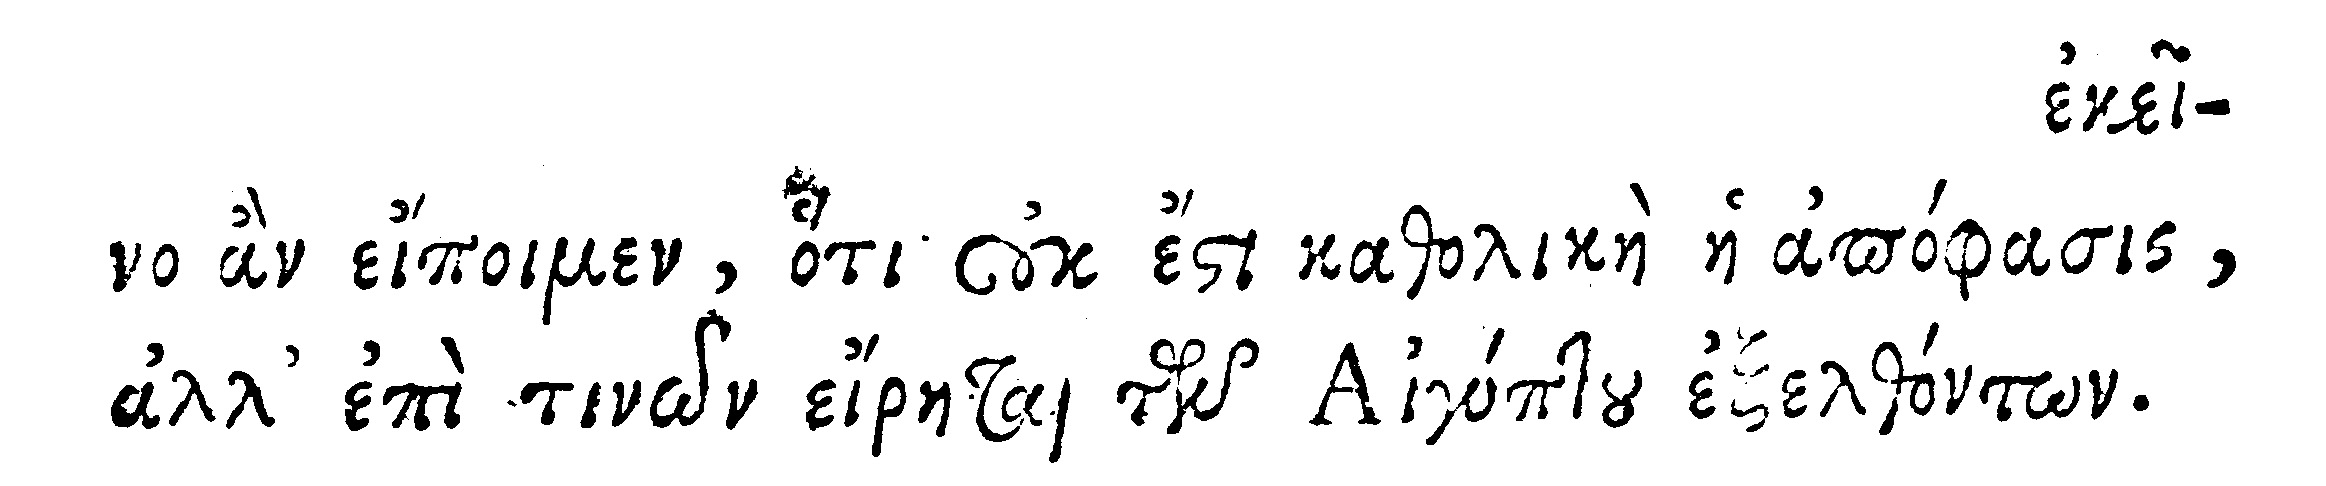 ἐκεῖ-
νο ἂν εἴποιμεν, ὅτι οὐκ ἔστι καθολικὴ ἡ ἀπόφασις,
ἀλλ᾽ ἐπὶ τινῶν εἴρηται τῶν Αἰγύπτου ἐξελθόντων.